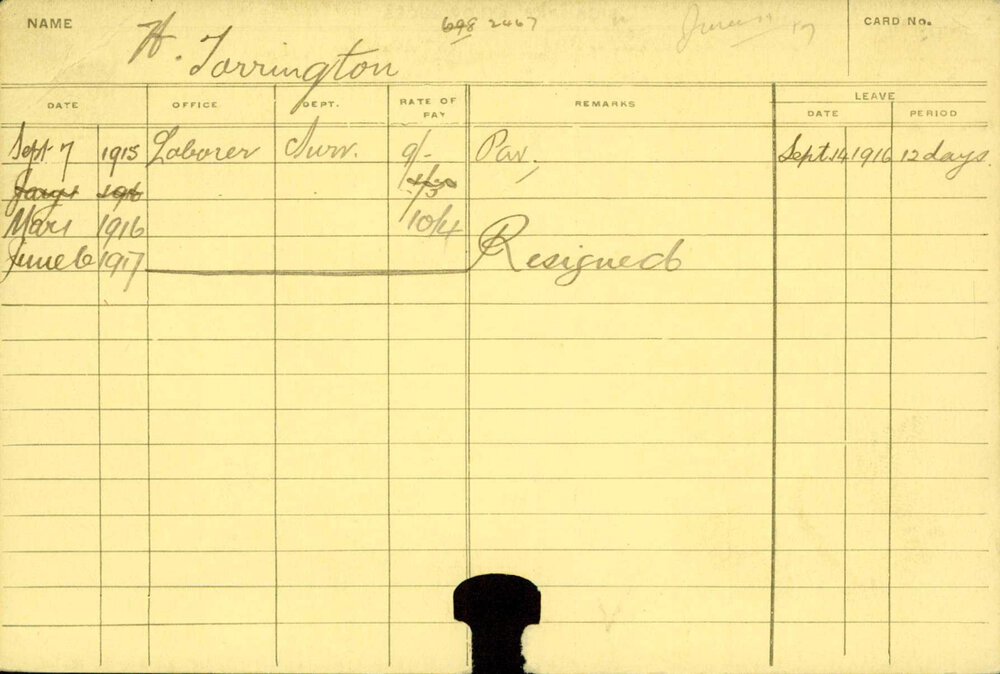 NAME H. Torrington 698 2467 CARD No.
DATE OFFICE DEPT. RATE OF PAY REMARKS LEAVE
DATE PERIOD
Sept 7 1915 Laborer Surv. 9/- Pav. Sept 14 1916 12 days
Mar 1 1916 10/4
June 6 1917 Resigned